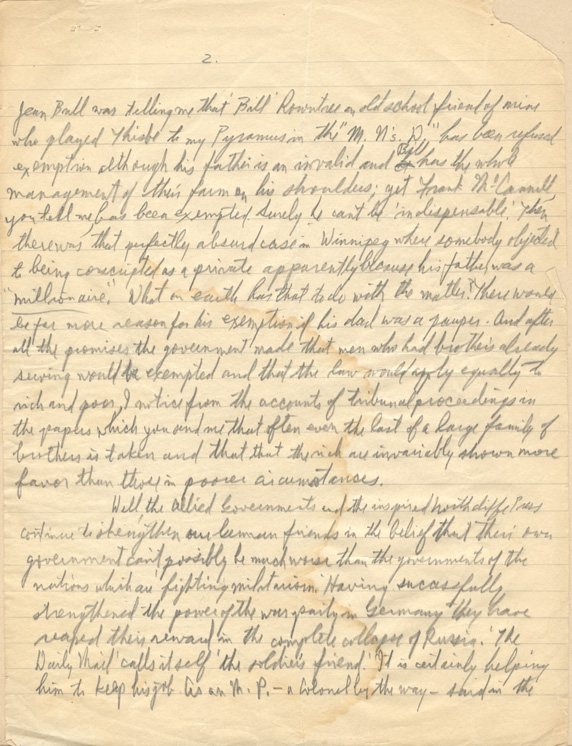 2.
Jean Bull was telling me that 'Bill' Rowntree an old school friend of mine
who played Thisbe to my Pyramus in the "M. N's. D." has been refused
exemption although his father is an invalid and Bill has the whole
management of their farm on his shoulders; yet Frank McConnell
you tell me has been exempted surely he can't be 'indispensable'. Then
there was that perfectly absurd case in Winnipeg where somebody objected
to being conscripted as a private apparently because his father was a
"millionaire". What on earth has that to do with the matter? There would
be far more reason for his exemption if his dad was a pauper. And after
all the promises the government made that men who had brothers already
serving would be exempted and that the law would apply equally to
rich and poor, I notice from the accounts of tribunal proceedings in
the papers which you send me that often even the last of a large family of
brothers is taken and that that the rich are invariably shown more
favor than those in poorer circumstances.
Well the Allied Governments and the inspired Northcliffe Press
continue to strengthen our German friends in the belief that their own
government can't possibly be much worse than the governments of the
nations which are 'fighting militarism. Having sucessfully
strengthened the power of the war party in Germany they have
reaped their reward in the complete collapse of Russia. 'The
Daily Mail' calls itself 'the soldier's friend.' It is certainly helping
him to keep his job. As an M. P. - a Colonel by the way - said in the